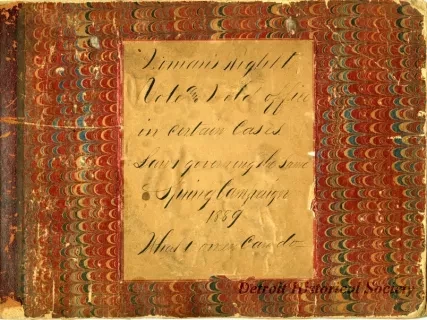 Woman's Right to
Vote & Hold office
in Certain Cases
Laws governing the same
& Spring Campaign
1889
What women can do
Detroit Historical Society